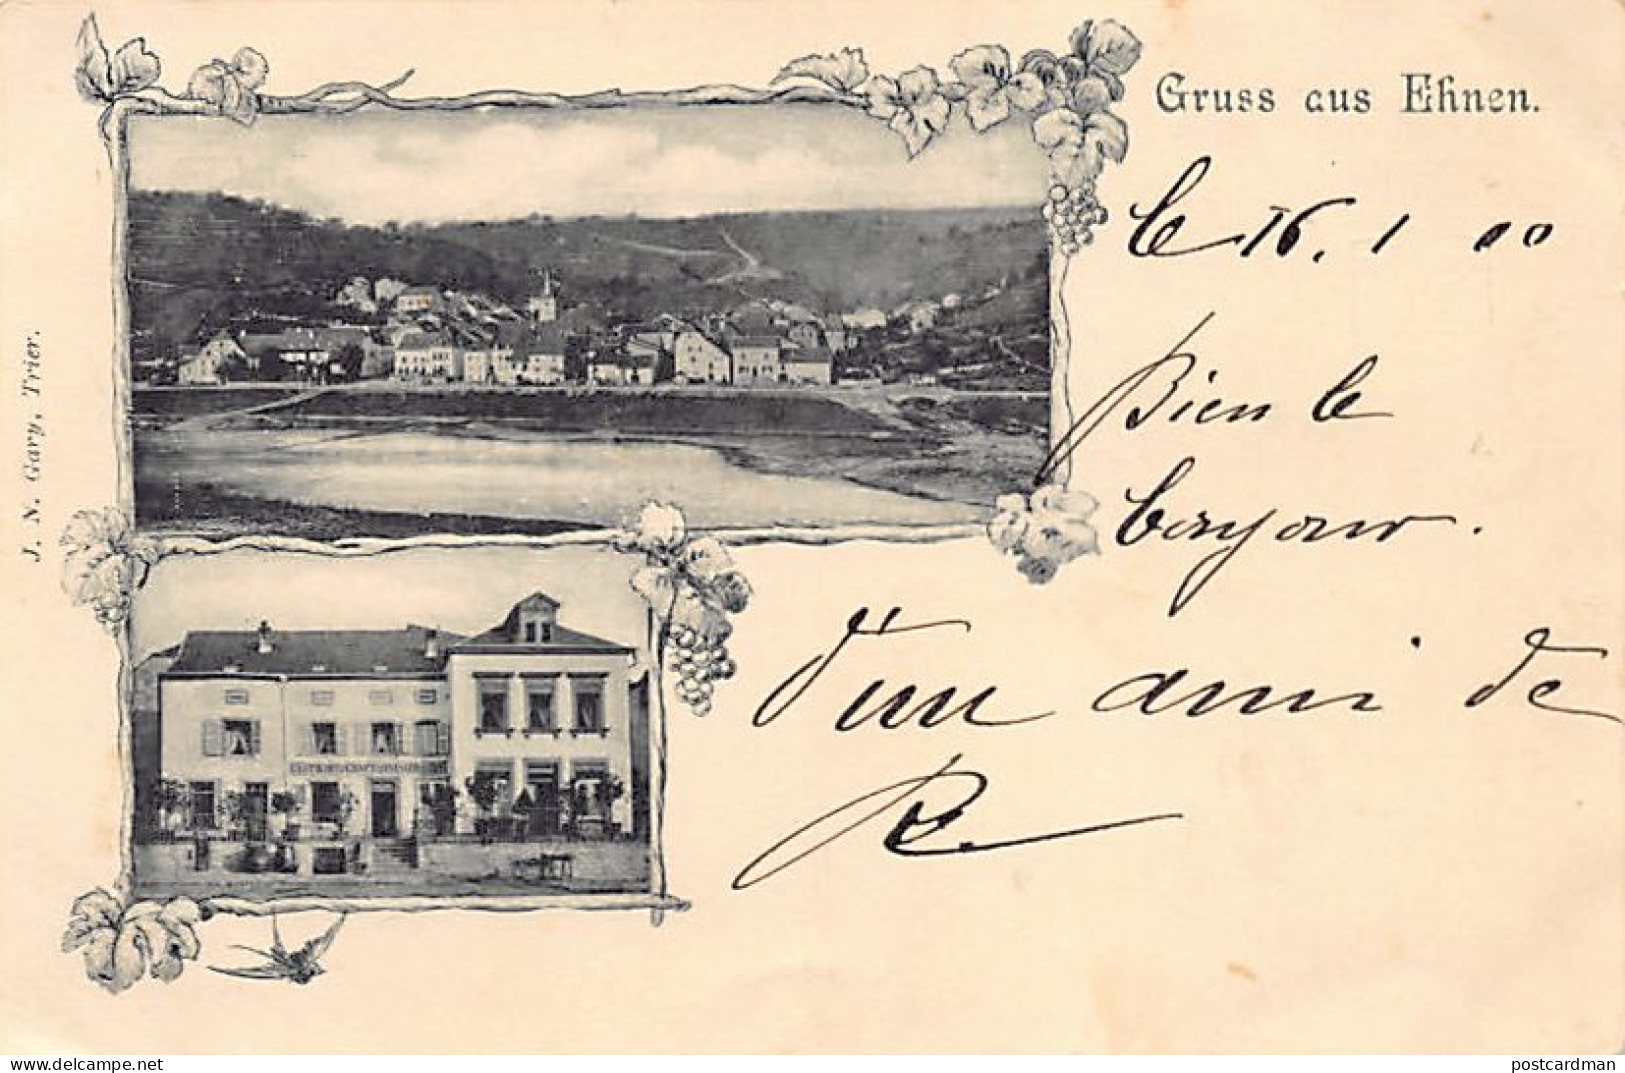 Gruss aus Ehnen.
le 16. 1 00
Bien le
bonjour.
D'un ami de
R
J. N. Gary, Trier.
www.delcampe.net
postcardman